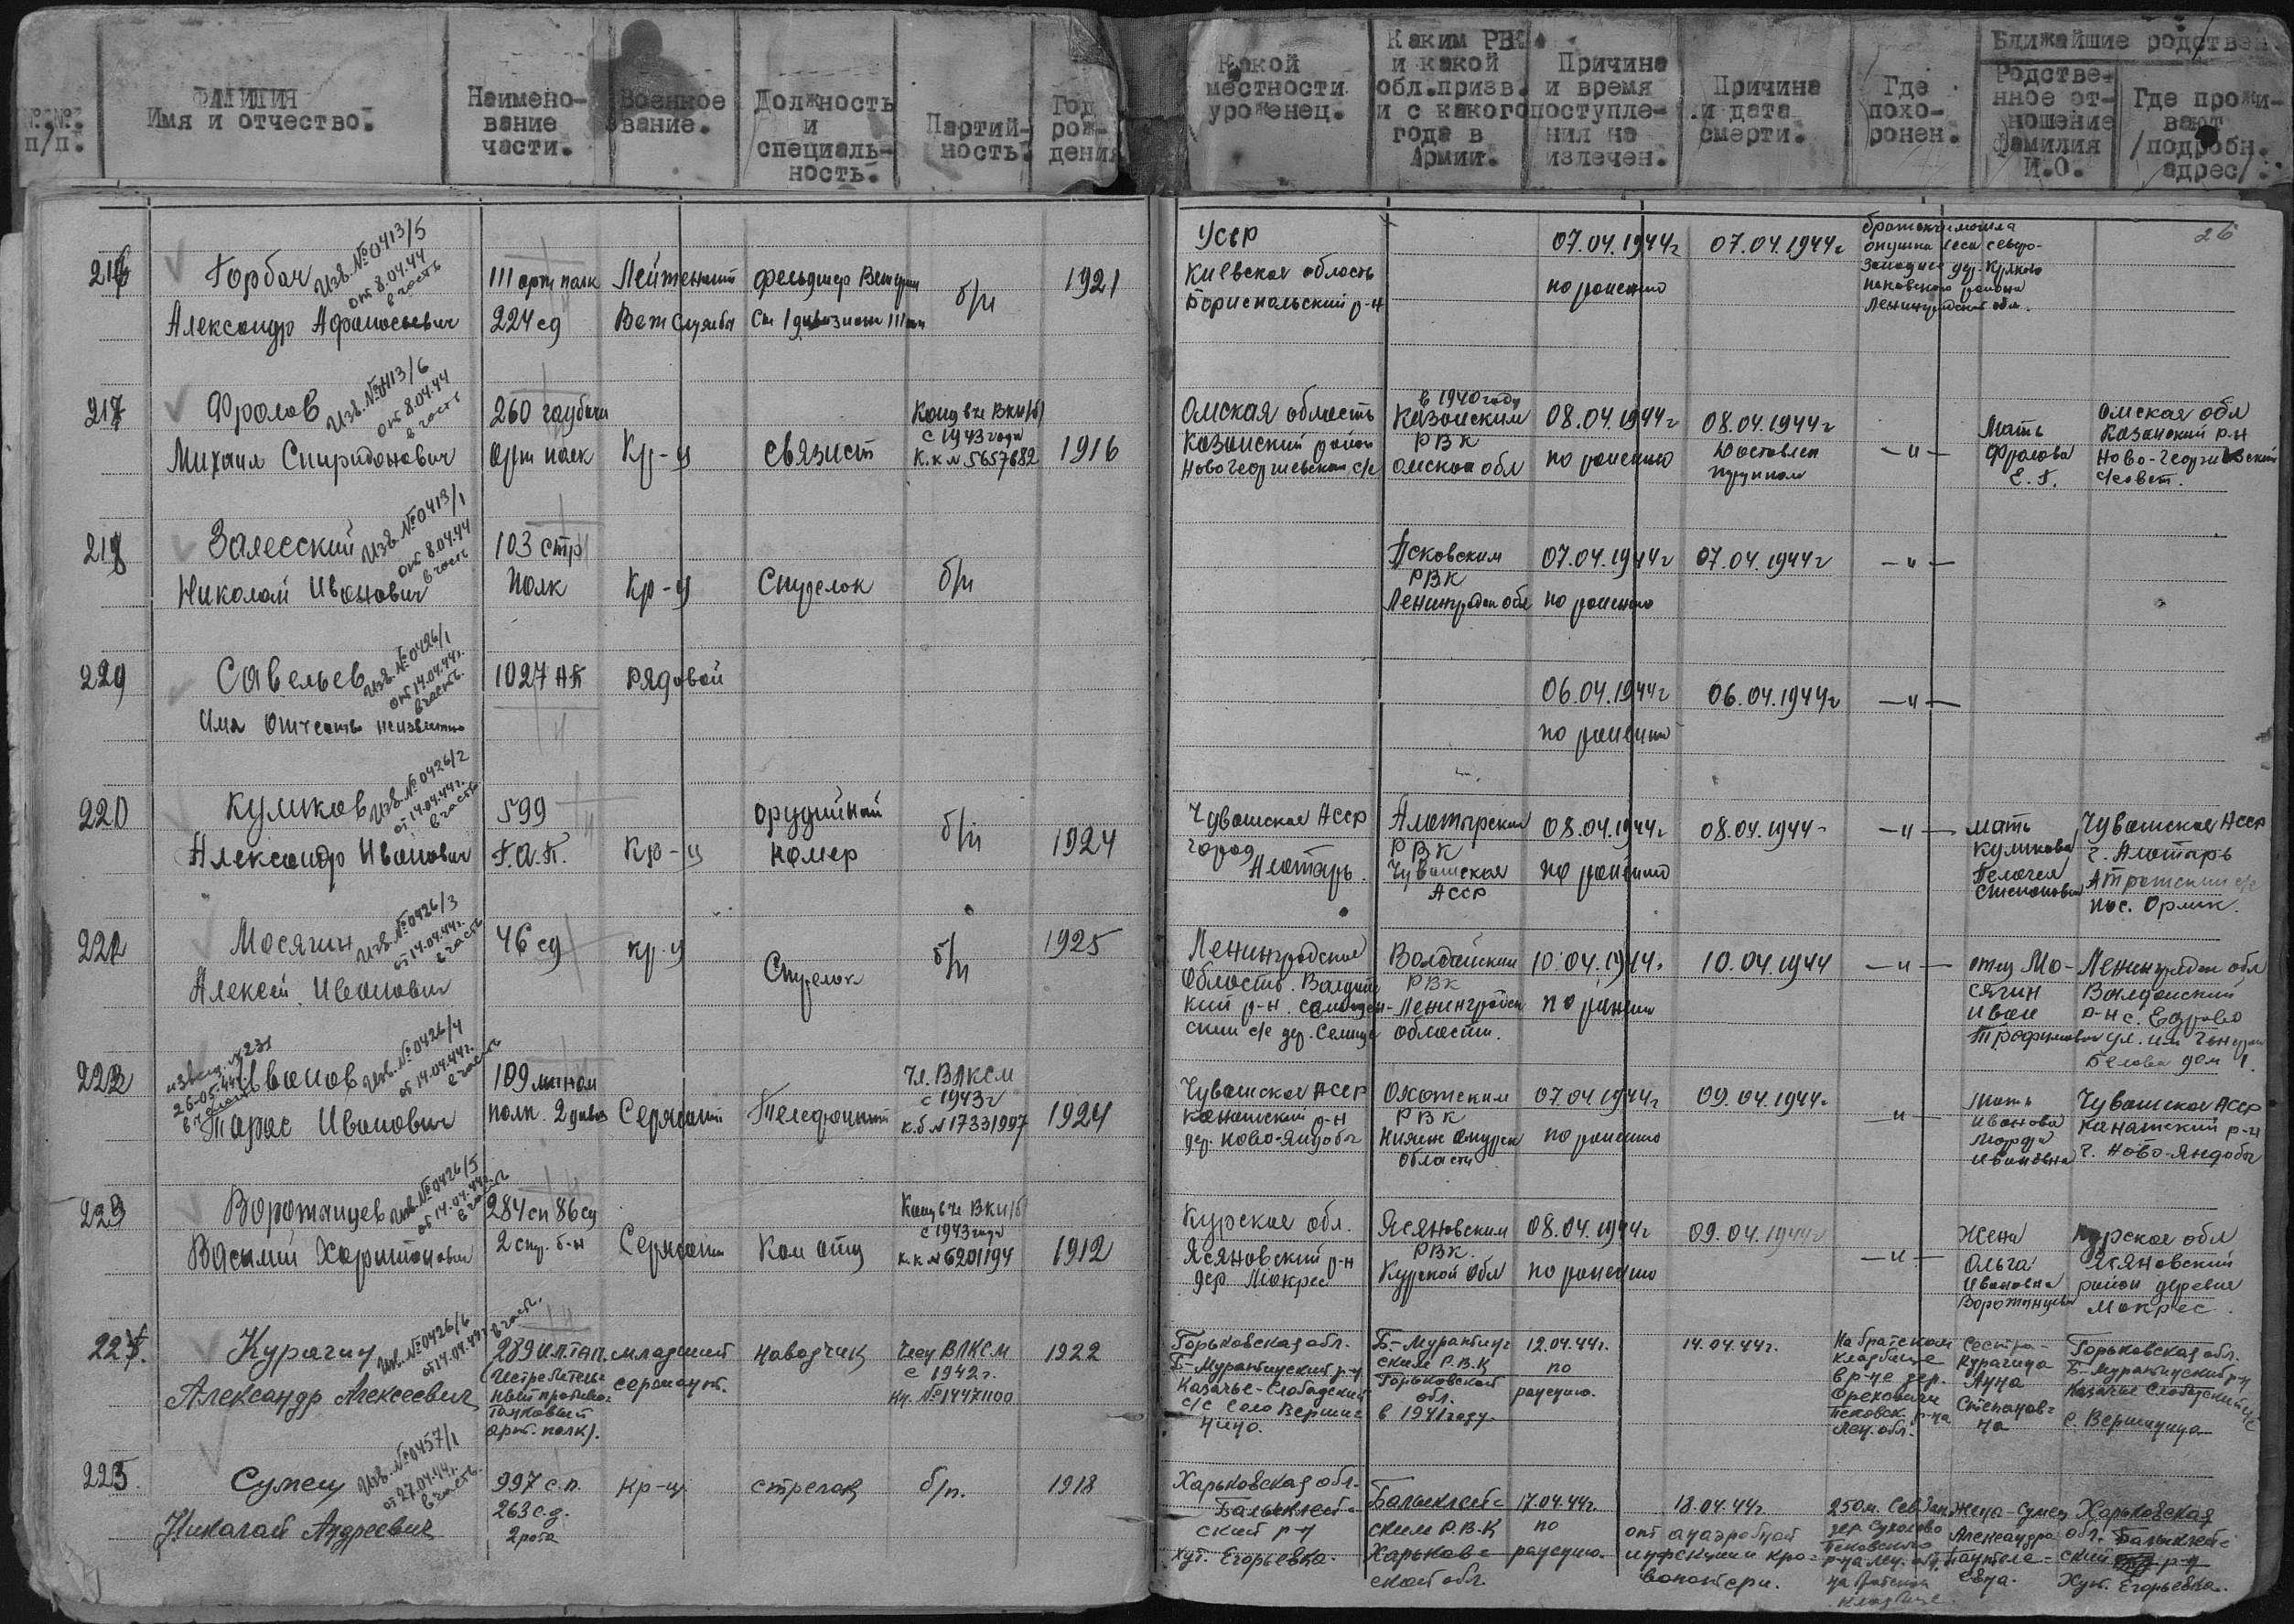 №№ п/п.
ФАМИЛИЯ
Имя и отчество.
Наимено-
вание
части.
Военное
звание.
Должность
и
специаль-
ность.
Партий-
ность.
Год
рож-
дения
Какой
местности
уроженец.
Каким РВК
и какой
обл.призв.
и с какого
года в
Армии.
Причина
и время
поступле-
ния на
излечен.
Причина
и дата
смерти.
Где
похо-
ронен.
Ближайшие родствен.
Родстве-
нное от-
ношение
фамилия
И.О.
Где прожи-
вают
/подробн.
адрес/.
26
216
Горбач
Александр Афанасьевич
Изв. №0413/5
от 8.04.44
в часть
111 арт полк
224 сд
Лейтенант
Вет службы
фельдшер Ветерин
1921
б/п
УССР
Киевская область
Бориспольский р-н
07.04.1944г
по ранению
07.04.1944г
братская могила
опушка леса северо-
западнее дер.
района
Ленинградской обл.
217
Фролов
Михаил Спиридонович
Изв. №0413/6
от 8.04.44
в часть
260 гаубичн
арт полк
Кр-ц
связист
Канд в чл ВКП/б/
с 1943 года
к.к №5657682
1916
Омская область
Казанский район
Новогеоргиевский с/с
в 1940 году
Казанским
РВК
Омской обл
08.04.1944г
по ранению
08.04.1944г
Доставлен
трупом
—"—
Мать
Фролова
Е. Г.
Омская обл
Казанский р-н
Ново-Георгиевский
с/совет.
218
Залесский
Николай Иванович
Изв. №0413/1
от 8.04.44
в часть
103 стр
полк
Кр-ц
Стрелок
б/п
Псковским
РВК
Ленинградск обл
07.04.1944г
по ранению
07.04.1944г
—"—
219
Савельев
Имя Отчество неизвестно
Изв. №0426/1
от 14.04.44г.
в часть.
1027 АП
Рядовой
06.04.1944г
по ранению
06.04.1944г
—"—
220
Куликов
Александр Иванович
Изв. №0426/2
от 14.04.44г.
в часть
599
Г.А.П.
Кр-ц
орудийный
номер
б/п
1924
Чувашская АССР
город
Алатырь.
Алатырским
РВК
Чувашская
АССР
08.04.1944г
по ранению
08.04.1944
—"—
мать
Куликова
Пелагея
Степановна
Чувашская АССР
г. Алатырь
Атратский с/с
пос. Орлик.
221
Мосягин
Алексей Иванович
Изв. №0426/3
от 14.04.44г.
в часть
46 сд
кр-ц
Стрелок
б/п
1925
Ленинградская
Область. Валдай
ский р-н
Валдайским
РВК
Ленинградск
области.
10.04.1944.
по ранению
10.04.1944
—"—
отец Мо-
сягин
Иван
Трофимович
Ленинградск обл
Валдайский
р-н с. Едрово
Белова дом 1.
222
Иванов
Тарас Иванович
26-05-44
Изв. №0426/4
от 14.04.44г.
в часть
109 мином
полк. 2 дивиз
Сержант
Телефонист
Чл. ВЛКСМ
с 1943г
к.б №17331997
1924
Чувашская АССР
Канашский р-н
дер. Ново-Яндобы
Охотским
РВК
Нижне Амурск
области
07.04.1944г
по ранению
09.04.1944г
—"—
мать
Иванова
Ивановна
Чувашская АССР
Канашский р-н
г. Ново-Яндобы
223
Воротынцев
Василий Харитонович
Изв. №0426/5
от 14.04.44г.
в часть
284 сп 86 сд
2 стр. б-н
Сержант
Ком отд
Канд в чл ВКП/б/
с 1943 года
к.к №6201194
1912
Курская обл.
Ясяновский р-н
дер. Мокрес
Ясяновским
РВК.
Курской Обл
08.04.1944г
по ранению
09.04.1944г
—"—
Жена
Ольга
Ивановна
Воротынцева
Курская обл
Ясяновский
район деревня
Мокрес.
224.
Курагин
Александр Алексеевич
Изв. №0426/6
от 14.04.44г
в часть.
289 ИПТАП.
(Истребитель-
ный противо-
танковый
арт. полк).
младший
сержант.
наводчик
Член ВЛКСМ
с 1942 г.
1922
Горьковская обл.
Б-Мурашкинский р-н
Казачье-Слободский
с/с село Верши-
нино.
Б-Мурашкин-
ским Р.В.К
Горьковской
обл.
в 1941 году.
12.04.44г.
по
ранению.
14.04.44г.
На братском
кладбище
в р-не дер.
Ореховичи
Псковск. р-на
Лен. обл.
Сестра-
Курагина
Анна
Степанов-
на
Горьковская обл.
Б-Мурашкинский р-н
Казачье Слободский с/с
с. Вершинино
225.
Сумец
Николай Андреевич
Изв. №0457/1
от 27.04.44г.
в часть.
997 с.п.
263 с.д.
2 рота
кр-ц
стрелок
б/п.
1918
Харьковская обл.
Балаклей-
ский р-н
хут. Егорьевка.
Балаклей-
ским Р.В.К
Харьков-
ской обл.
17.04.44г.
по
ранению.
18.04.44г
от анаэробной
инфекции и кро-
вопотери.
250 м. Сев Зап
Псковского
р-на Лен. обл.
на братском
кладбище.
Жена-Сумец
Александра
Пантеле-
евна.
Харьковская
обл. Балаклей-
ский р-н
Хут. Егорьевка.